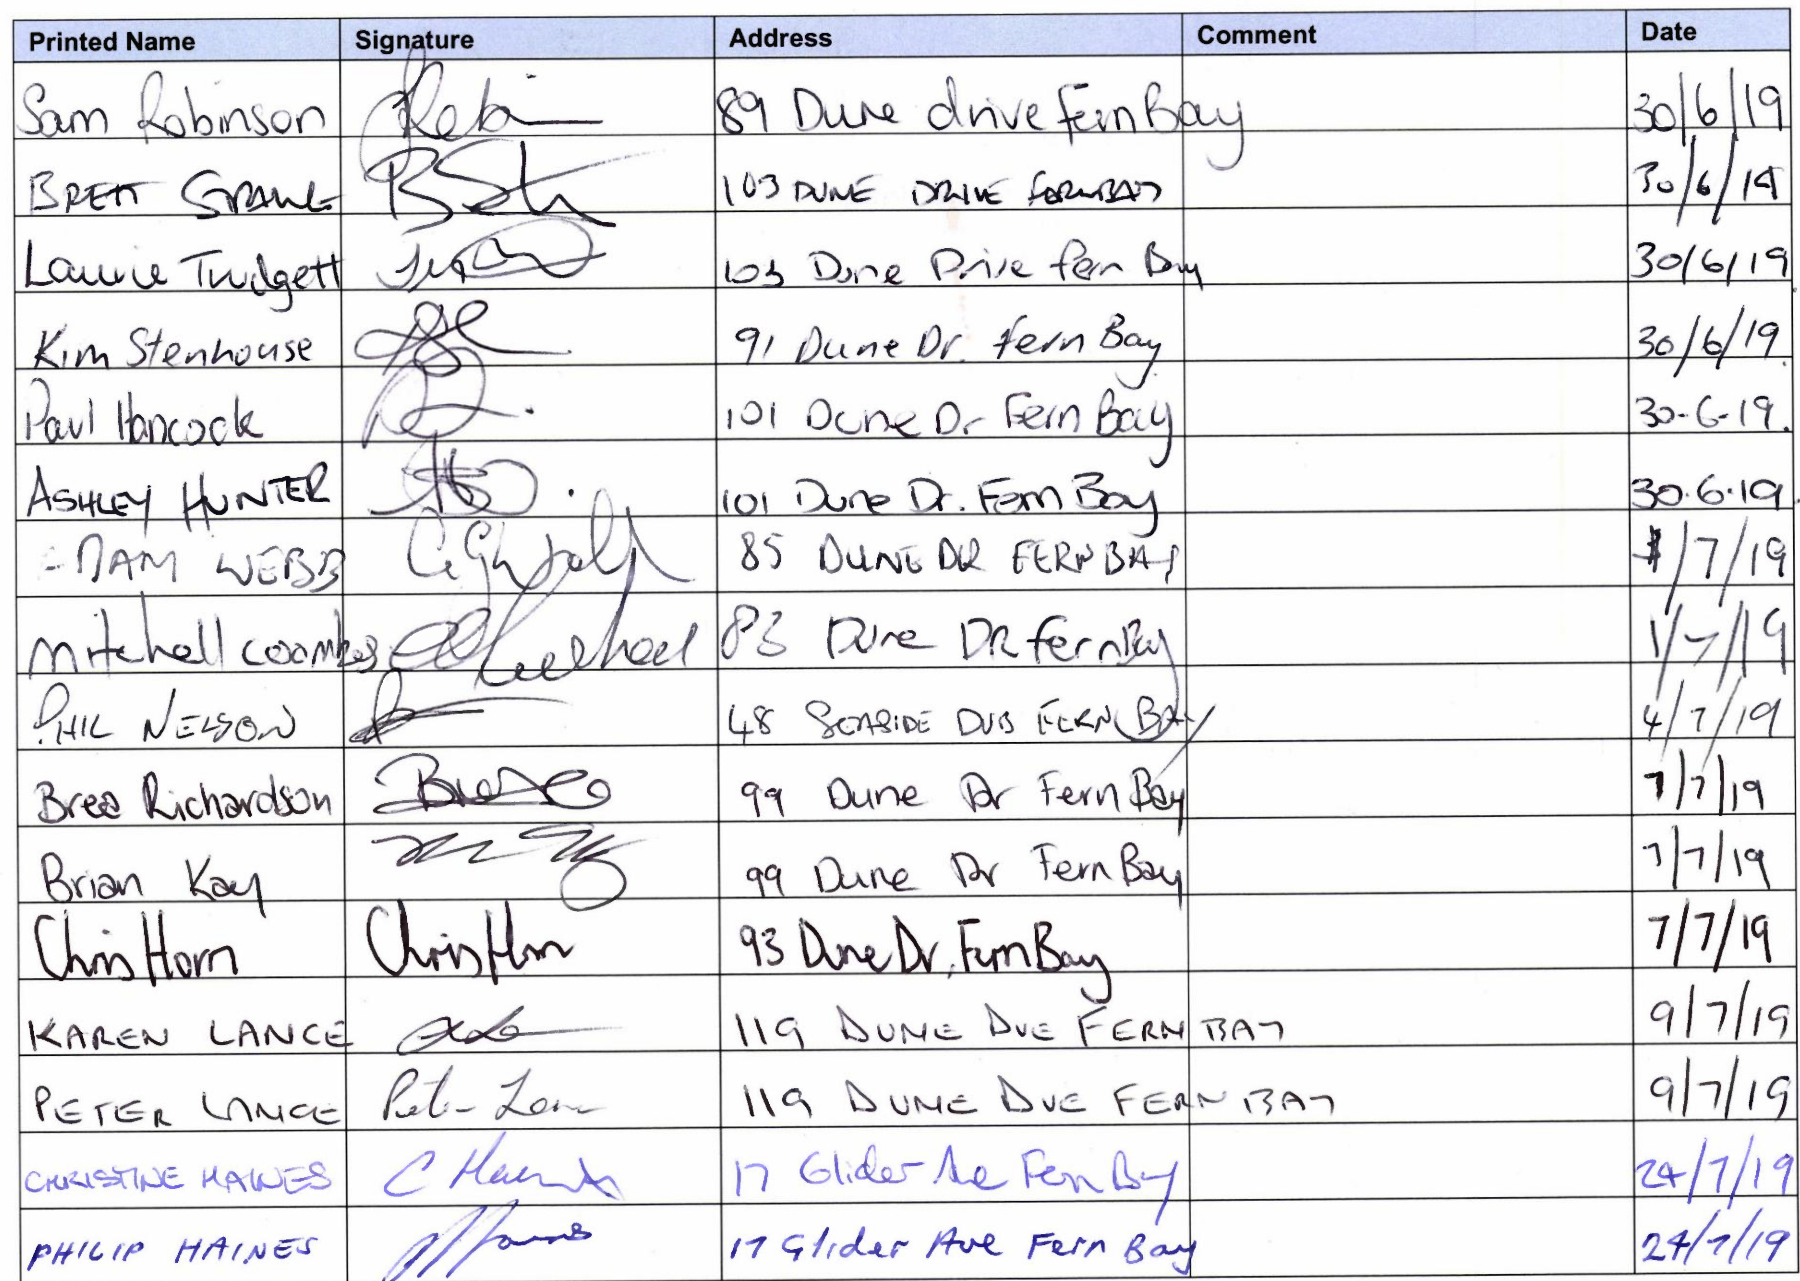 Printed Name Signature Address Comment Date
Sam Robinson 89 Dune drive Fern Bay 30/6/19
BRETT 103 DUNE DRIVE FERN BAY 30/6/19
Laurie Trudgett 103 Dune Drive Fern Bay 30/6/19
Kim Stenhouse 91 Dune Dr. Fern Bay 30/6/19.
Paul Hancock 101 Dune Dr Fern Bay 30-6-19.
ASHLEY HUNTER 101 Dune Dr. Fern Bay 30.6.19.
ADAM WEBB 85 DUNE DR FERN BAY 1/7/19
Mitchell Coombes 83 Dune DR fern Bay 1/7/19
PHIL NELSON 48 SEASIDE FERN BAY 4/7/19
Bree Richardson 99 Dune Dr Fern Bay 7/7/19
Brian Kay 99 Dune Dr Fern Bay 7/7/19
Chris Horn Chris Horn 93 Dune Dr, Fern Bay 7/7/19
KAREN LANCE 119 DUNE DVE FERN BAY 9/7/19
PETER LANCE Peter Lance 119 DUNE DVE FERN BAY 9/7/19
CHRISTINE HAINES C Haines 17 Glider Ave Fern Bay 24/7/19
PHILIP HAINES 17 Glider Ave Fern Bay 24/7/19